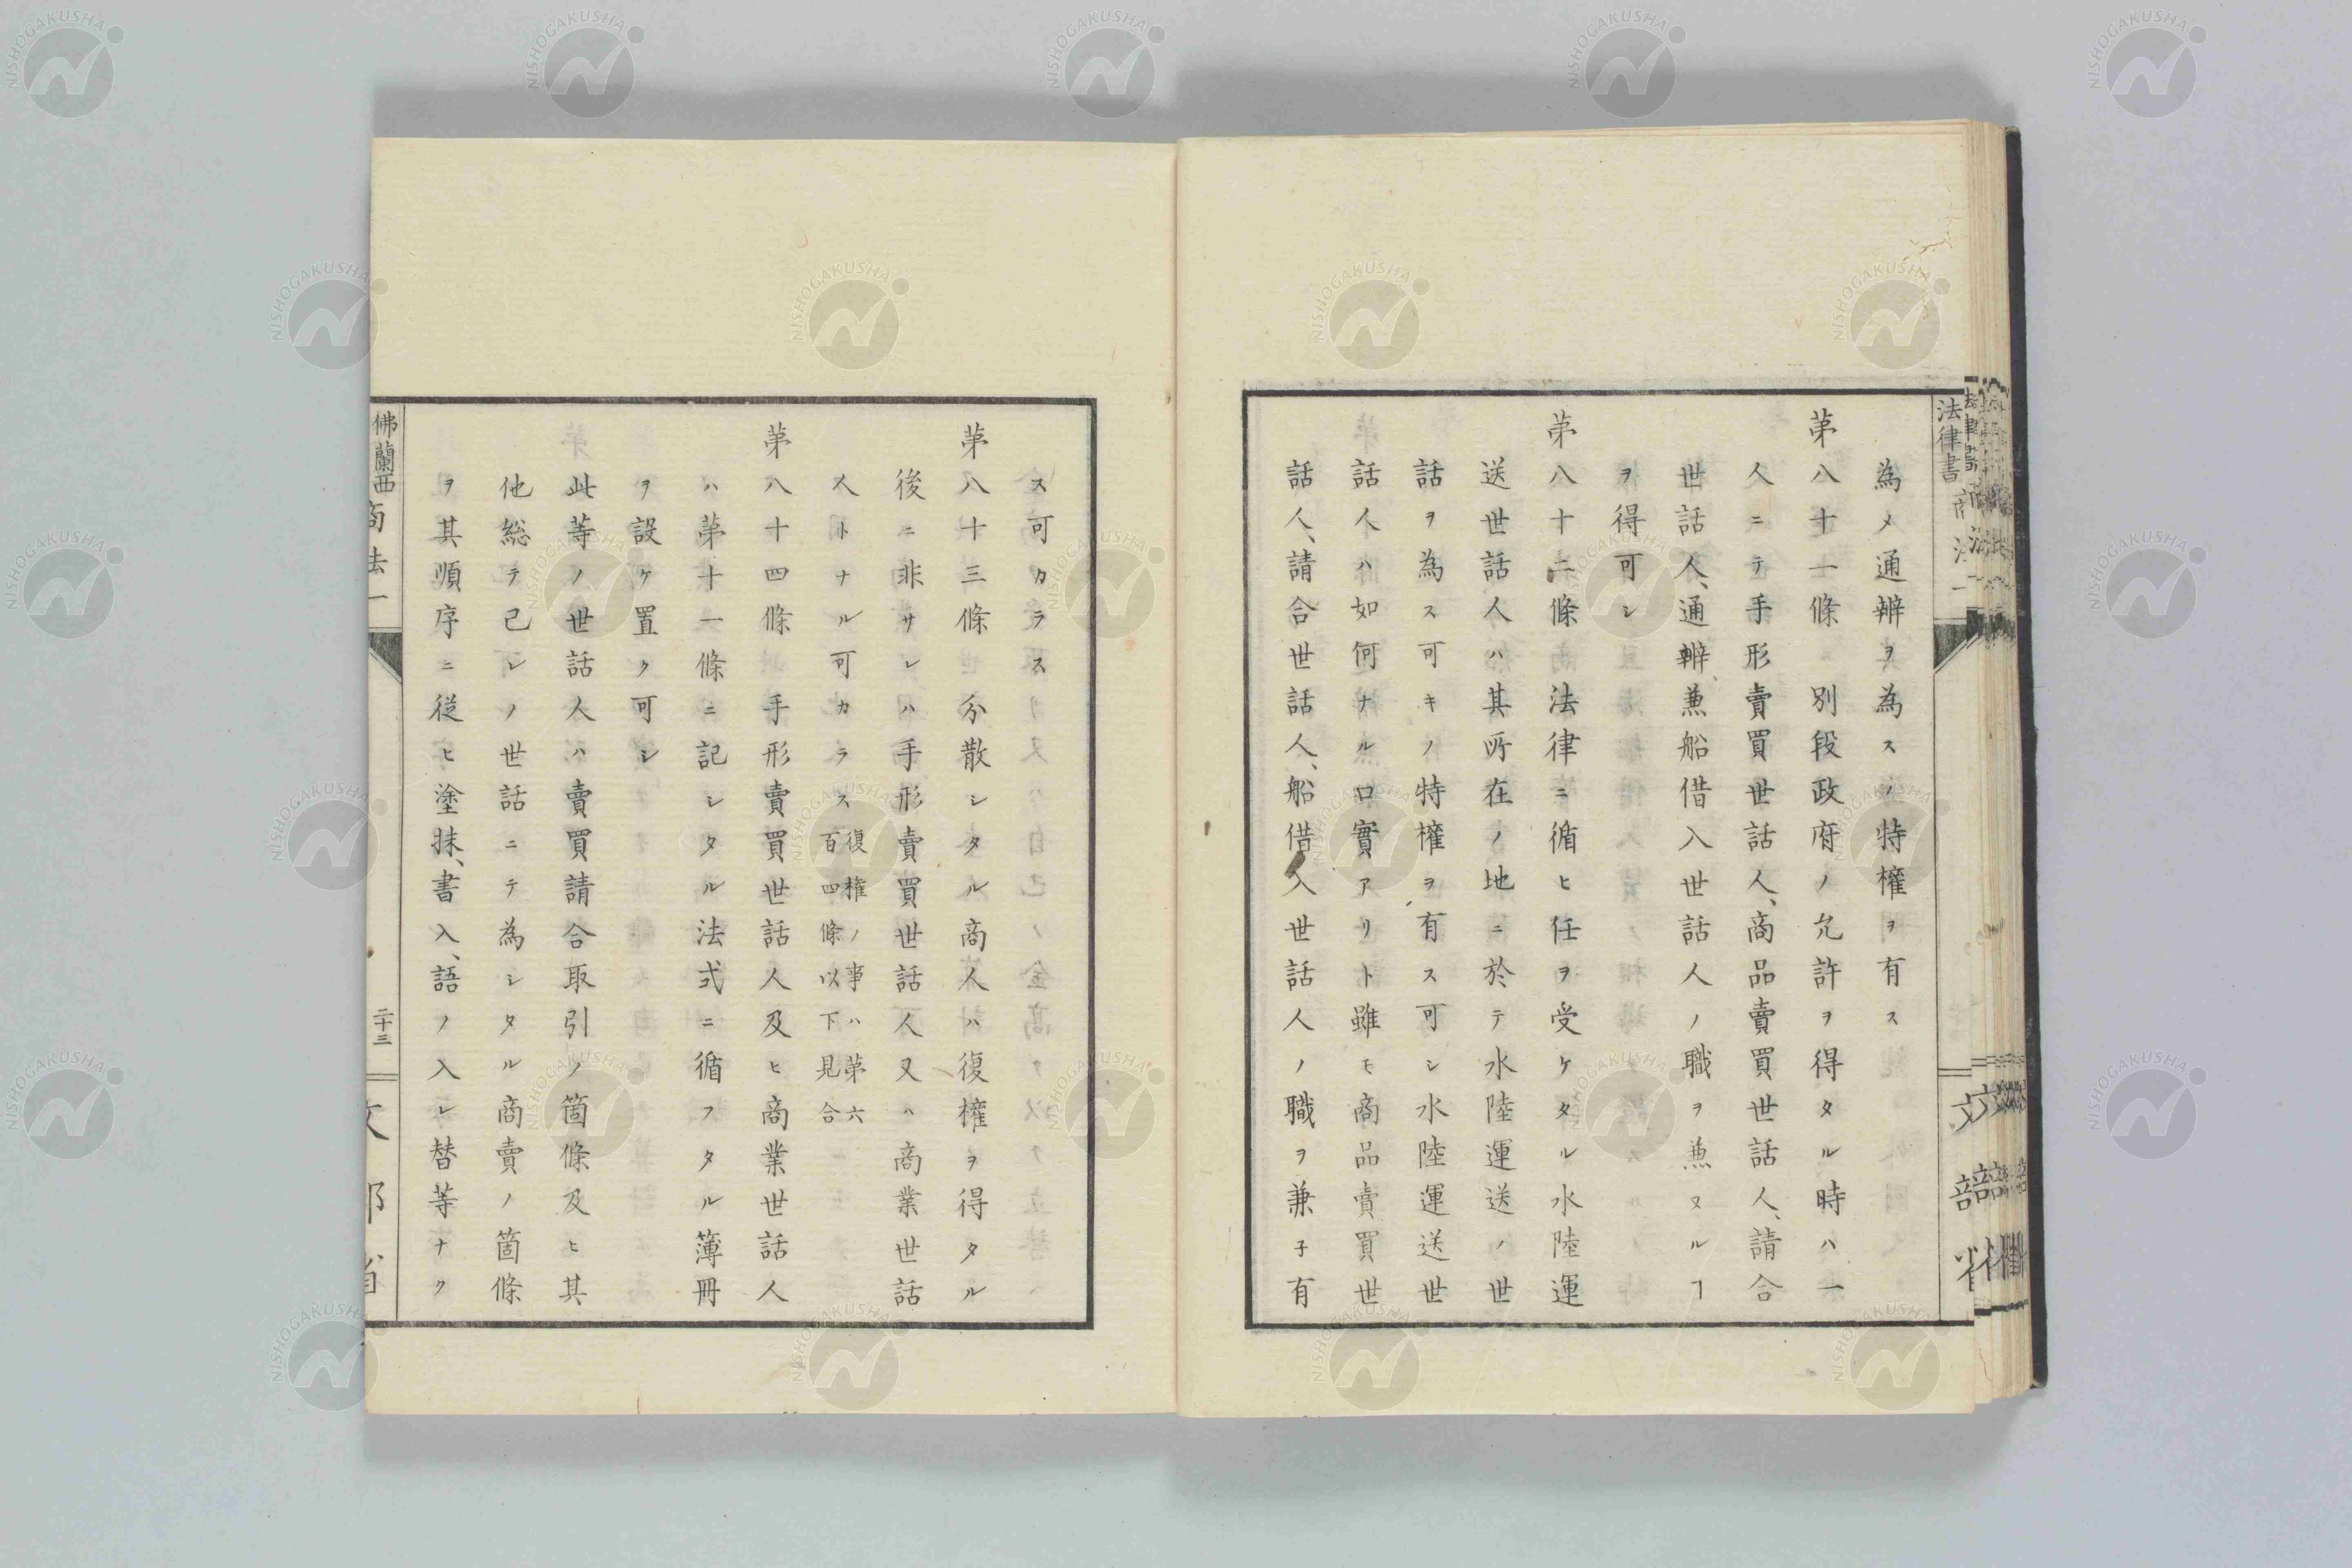 為メ通辨ヲ為スノ特權ヲ有ス
第八十一條　別段政府ノ允許ヲ得タル時ハ一
人ニテ手形賣買世話人、商品賣買世話人、請合
世話人、通辨兼船借入世話人ノ職ヲ兼ヌルヿ
ヲ得可シ
第八十二條　法律ニ循ヒ任ヲ受ケタル水陸運
送世話人ハ其所在ノ地ニ於テ水陸運送ノ世
話ヲ為ス可キノ特權ヲ有ス可シ水陸運送世
話人ハ如何ナル口實アリト雖モ商品賣買世
話人、請合世話人、船借入世話人ノ職ヲ兼子有
ス可カラス
第八十三條　分散シタル商人ハ復權ヲ得タル
後ニ非サレハ手形賣買世話人又ハ商業世話
人トナル可カラス復權ノ事ハ第六
百四條以下見合
第八十四條　手形賣買世話人及ヒ商業世話人
ハ第十一條ニ記シタル法式ニ循フタル簿冊
ヲ設ケ置ク可シ
此等ノ世話人ハ賣買請合取引ノ箇條及ヒ其
他総テ己レノ世話ニテ為シタル商賣ノ箇條
ヲ其順序ニ従ヒ塗抹、書入、語ノ入レ替等ナク
法律書
商法一
文部省
佛蘭西商法一
二十三
文部省
NISHOGAKUSHA